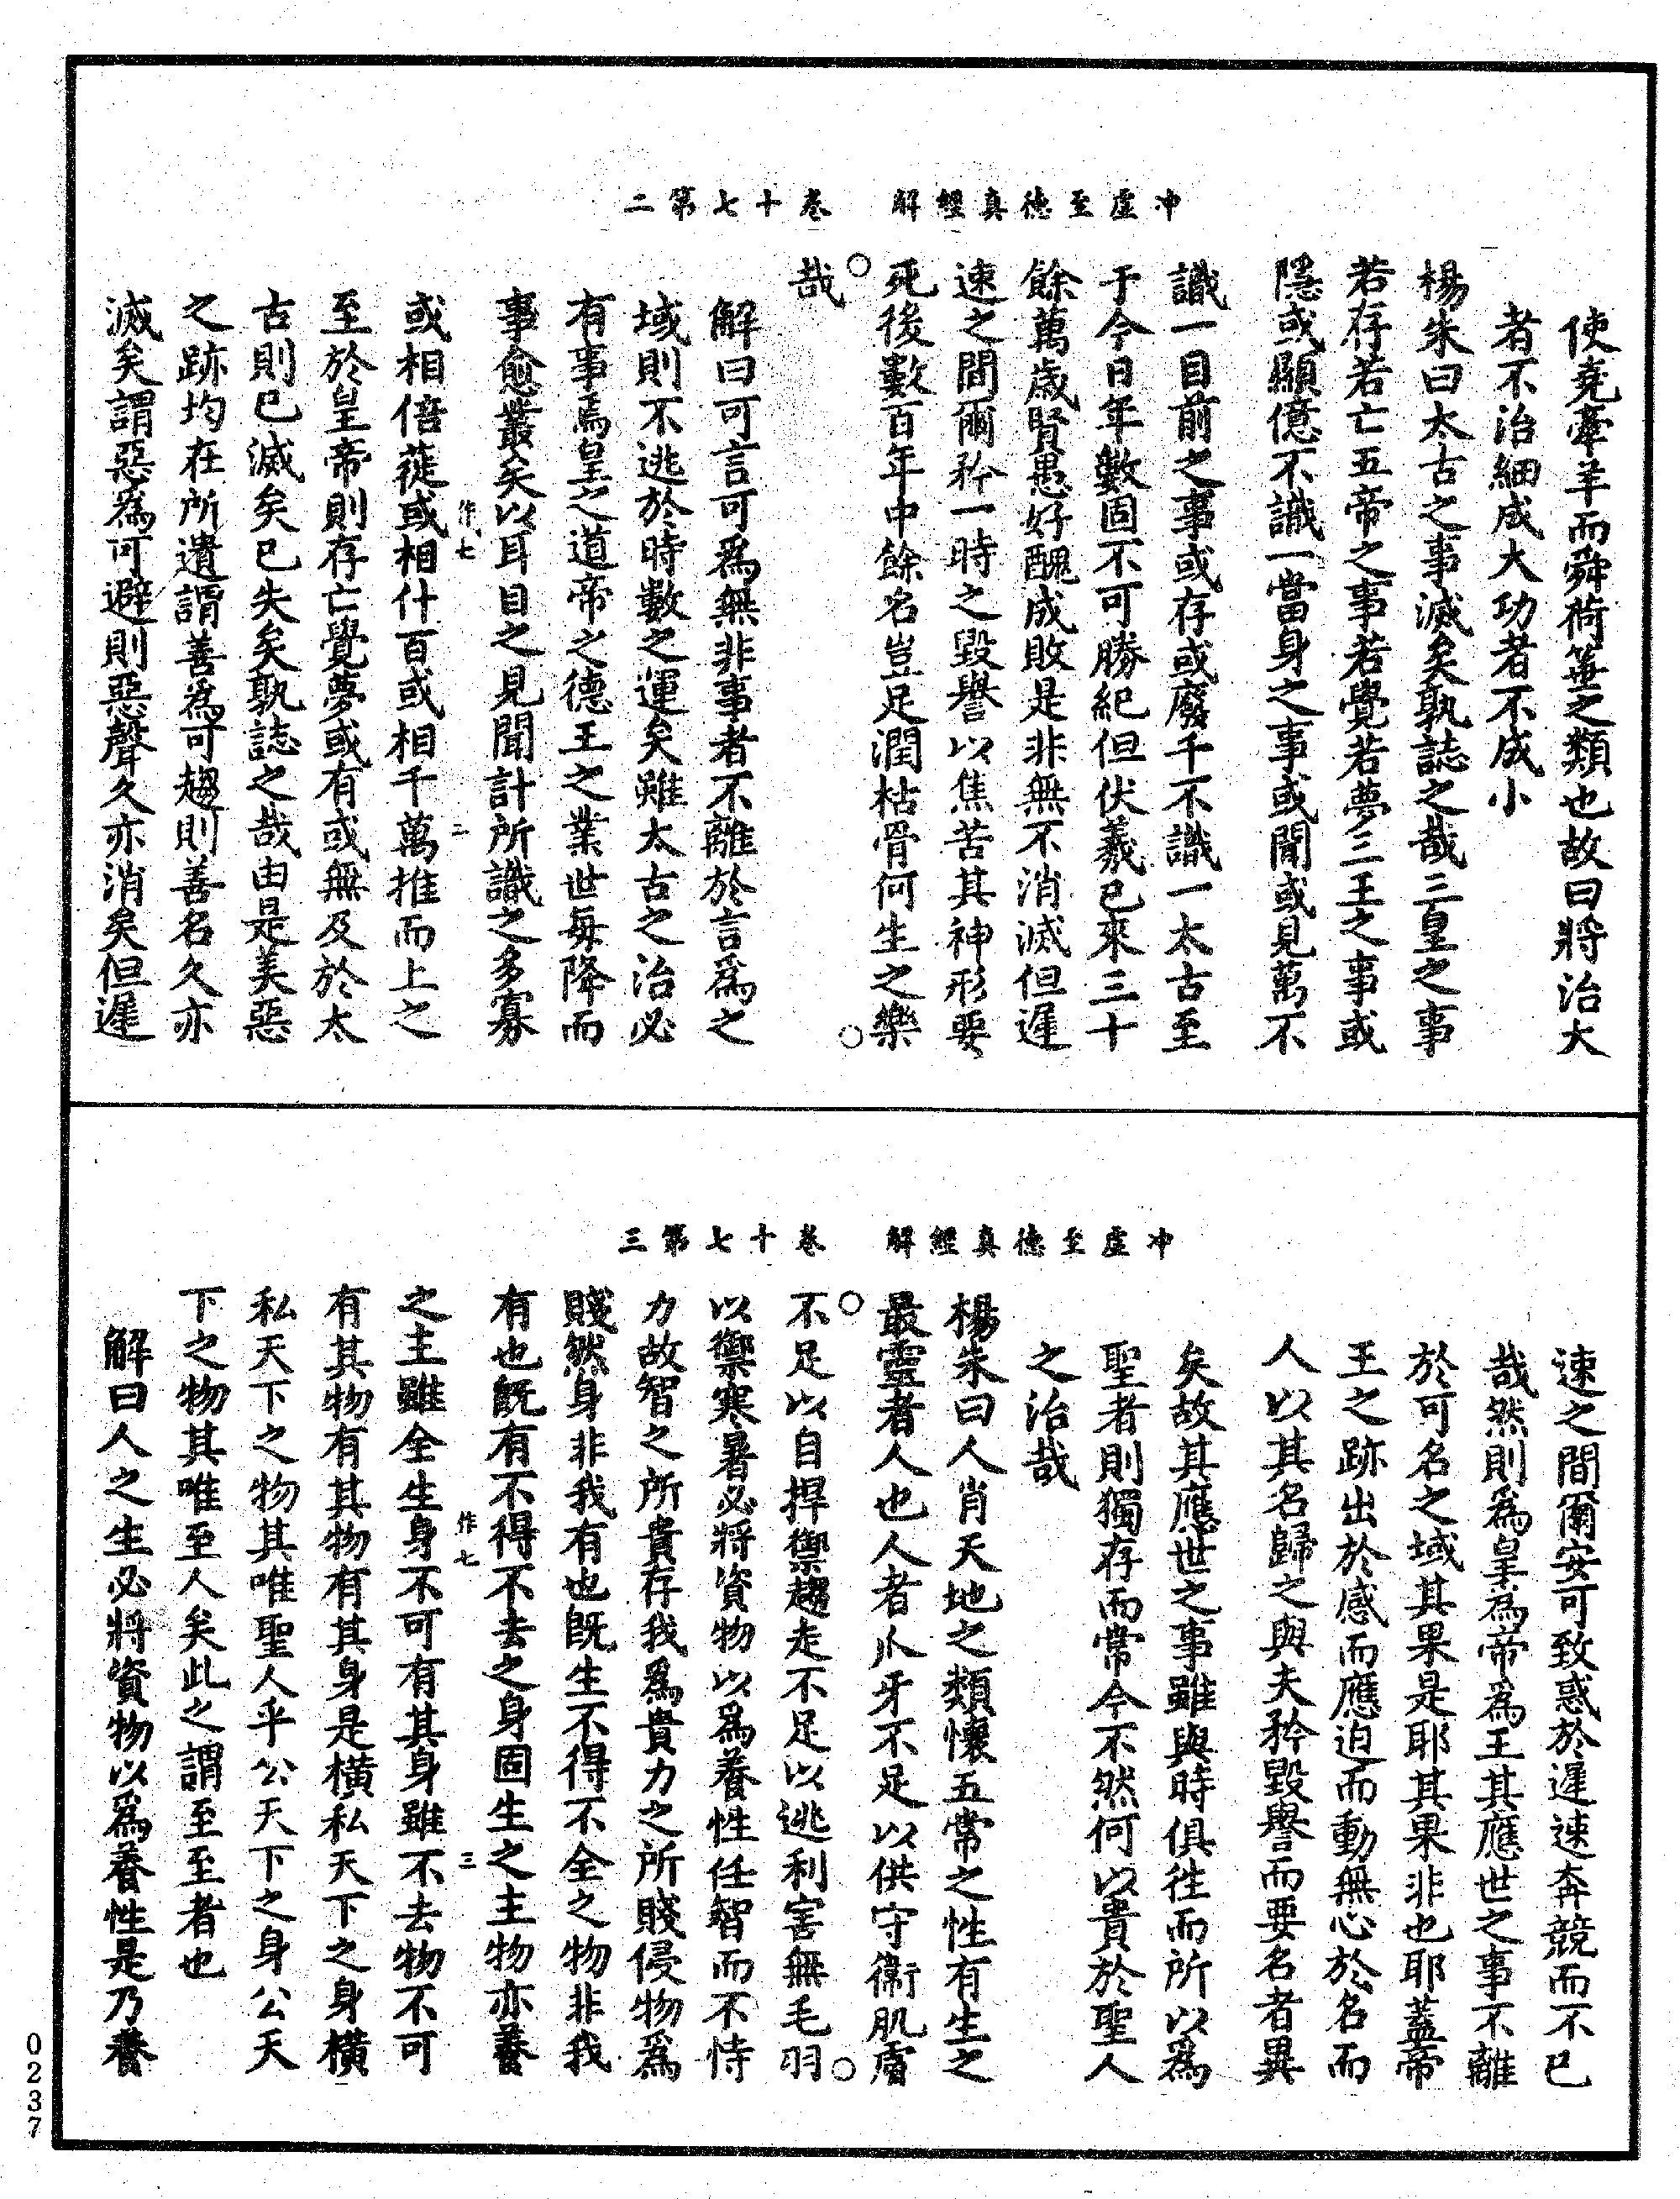 冲虛至德真經解　卷十七第二
使堯牽羊而舜荷箠之類也故曰將治大
者不治細成大功者不成小
楊朱曰太古之事滅矣孰誌之哉三皇之事
若存若亡五帝之事若覺若夢三王之事或
隱或顯億不識一當身之事或聞或見萬不
識一目前之事或存或廢千不識一太古至
于今日年數固不可勝紀但伏羲已來三十
餘萬歲賢愚好醜成敗是非無不消滅但遲
速之間爾矜一時之毀譽以焦苦其神形要
死後數百年中餘名豈足潤枯骨何生之樂
哉
解曰可言可為無非事者不離於言為之
域則不逃於時數之運矣雖太古之治必
有事焉皇之道帝之德王之業世每降而
事愈叢矣以耳目之見聞計所識之多寡
作七　二
或相倍蓰或相什百或相千萬推而上之
至於皇帝則存亡覺夢或有或無及於太
古則已滅矣已失矣孰誌之哉由是美惡
之跡均在所遺謂善為可趨則善名久亦
滅矣謂惡為可避則惡聲久亦消矣但遲
冲虛至德真經解　卷十七第三
速之間爾安可致惑於遲速奔競而不已
哉然則為皇為帝為王其應世之事不離
於可名之域其果是耶其果非也耶蓋帝
王之跡出於感而應迫而動無心於名而
人以其名歸之與夫矜毀譽而要名者異
矣故其應世之事雖與時俱往而所以為
聖者則獨存而常今不然何以貴於聖人
之治哉
楊朱曰人肖天地之類懷五常之性有生之
最靈者人也人者爪牙不足以供守衛肌膚
不足以自捍禦趨走不足以逃利害無毛羽
以禦寒暑必將資物以為養性任智而不恃
力故智之所貴存我為貴力之所賤侵物為
賤然身非我有也既生不得不全之物非我
有也既有不得不去之身固生之主物亦養
作七　三
之主雖全生身不可有其身雖不去物不可
有其物有其物有其身是橫私天下之身橫
私天下之物其唯聖人乎公天下之身公天
下之物其唯至人矣此之謂至至者也
解曰人之生必將資物以為養性是乃養
0237